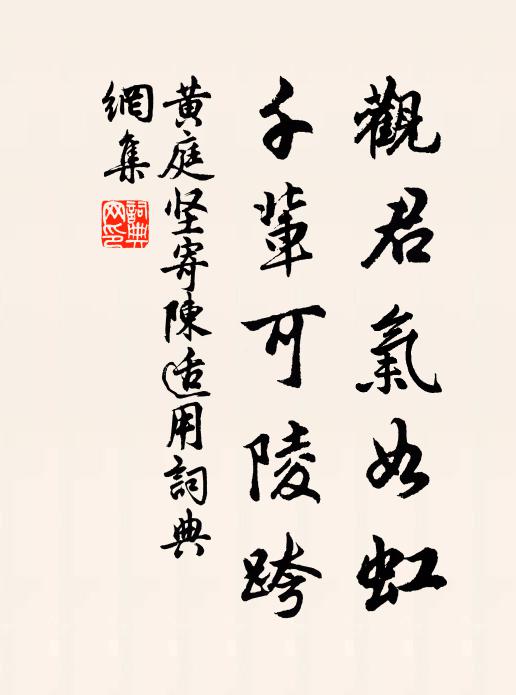 觀君氣如虹
千輩可陵跨
黃庭坚寄陳适用詞典
網集
詞典网印